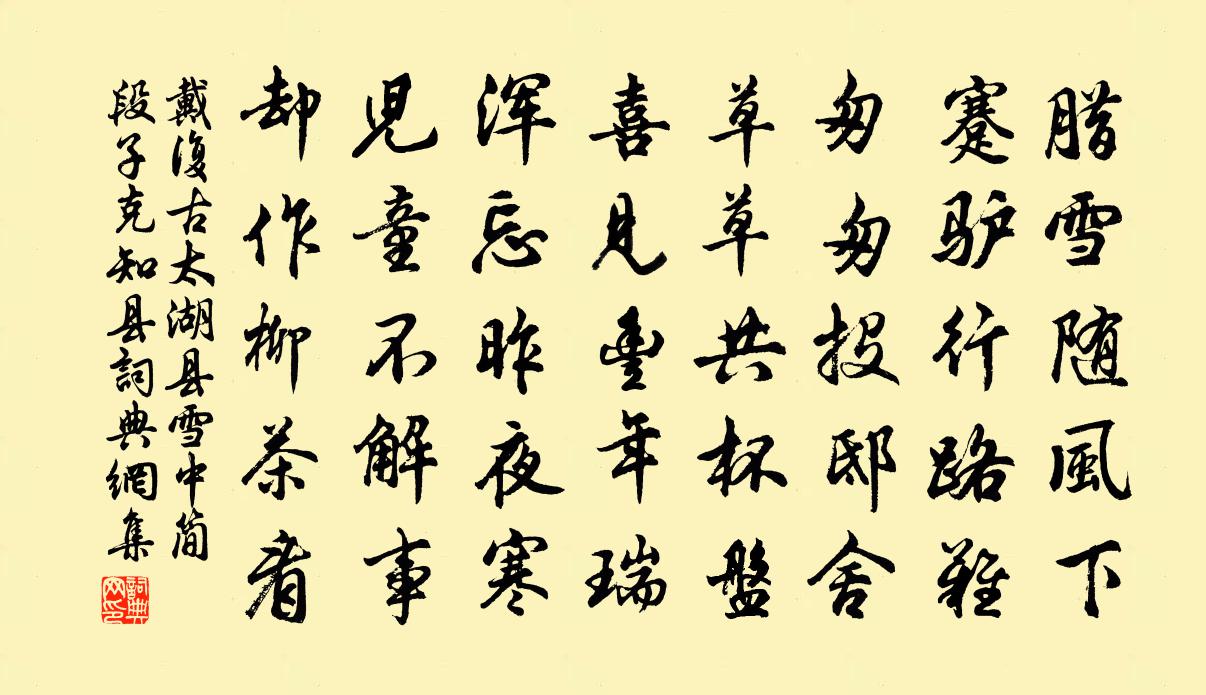 腊雪随風下
蹇驴行路難
匆匆投邸舍
草草共杯盤
喜見豊年瑞
浑忘昨夜寒
児童不解事
却作柳茶看
戴復古太湖县雪中简
段子克知县詞典網集
詞典网印